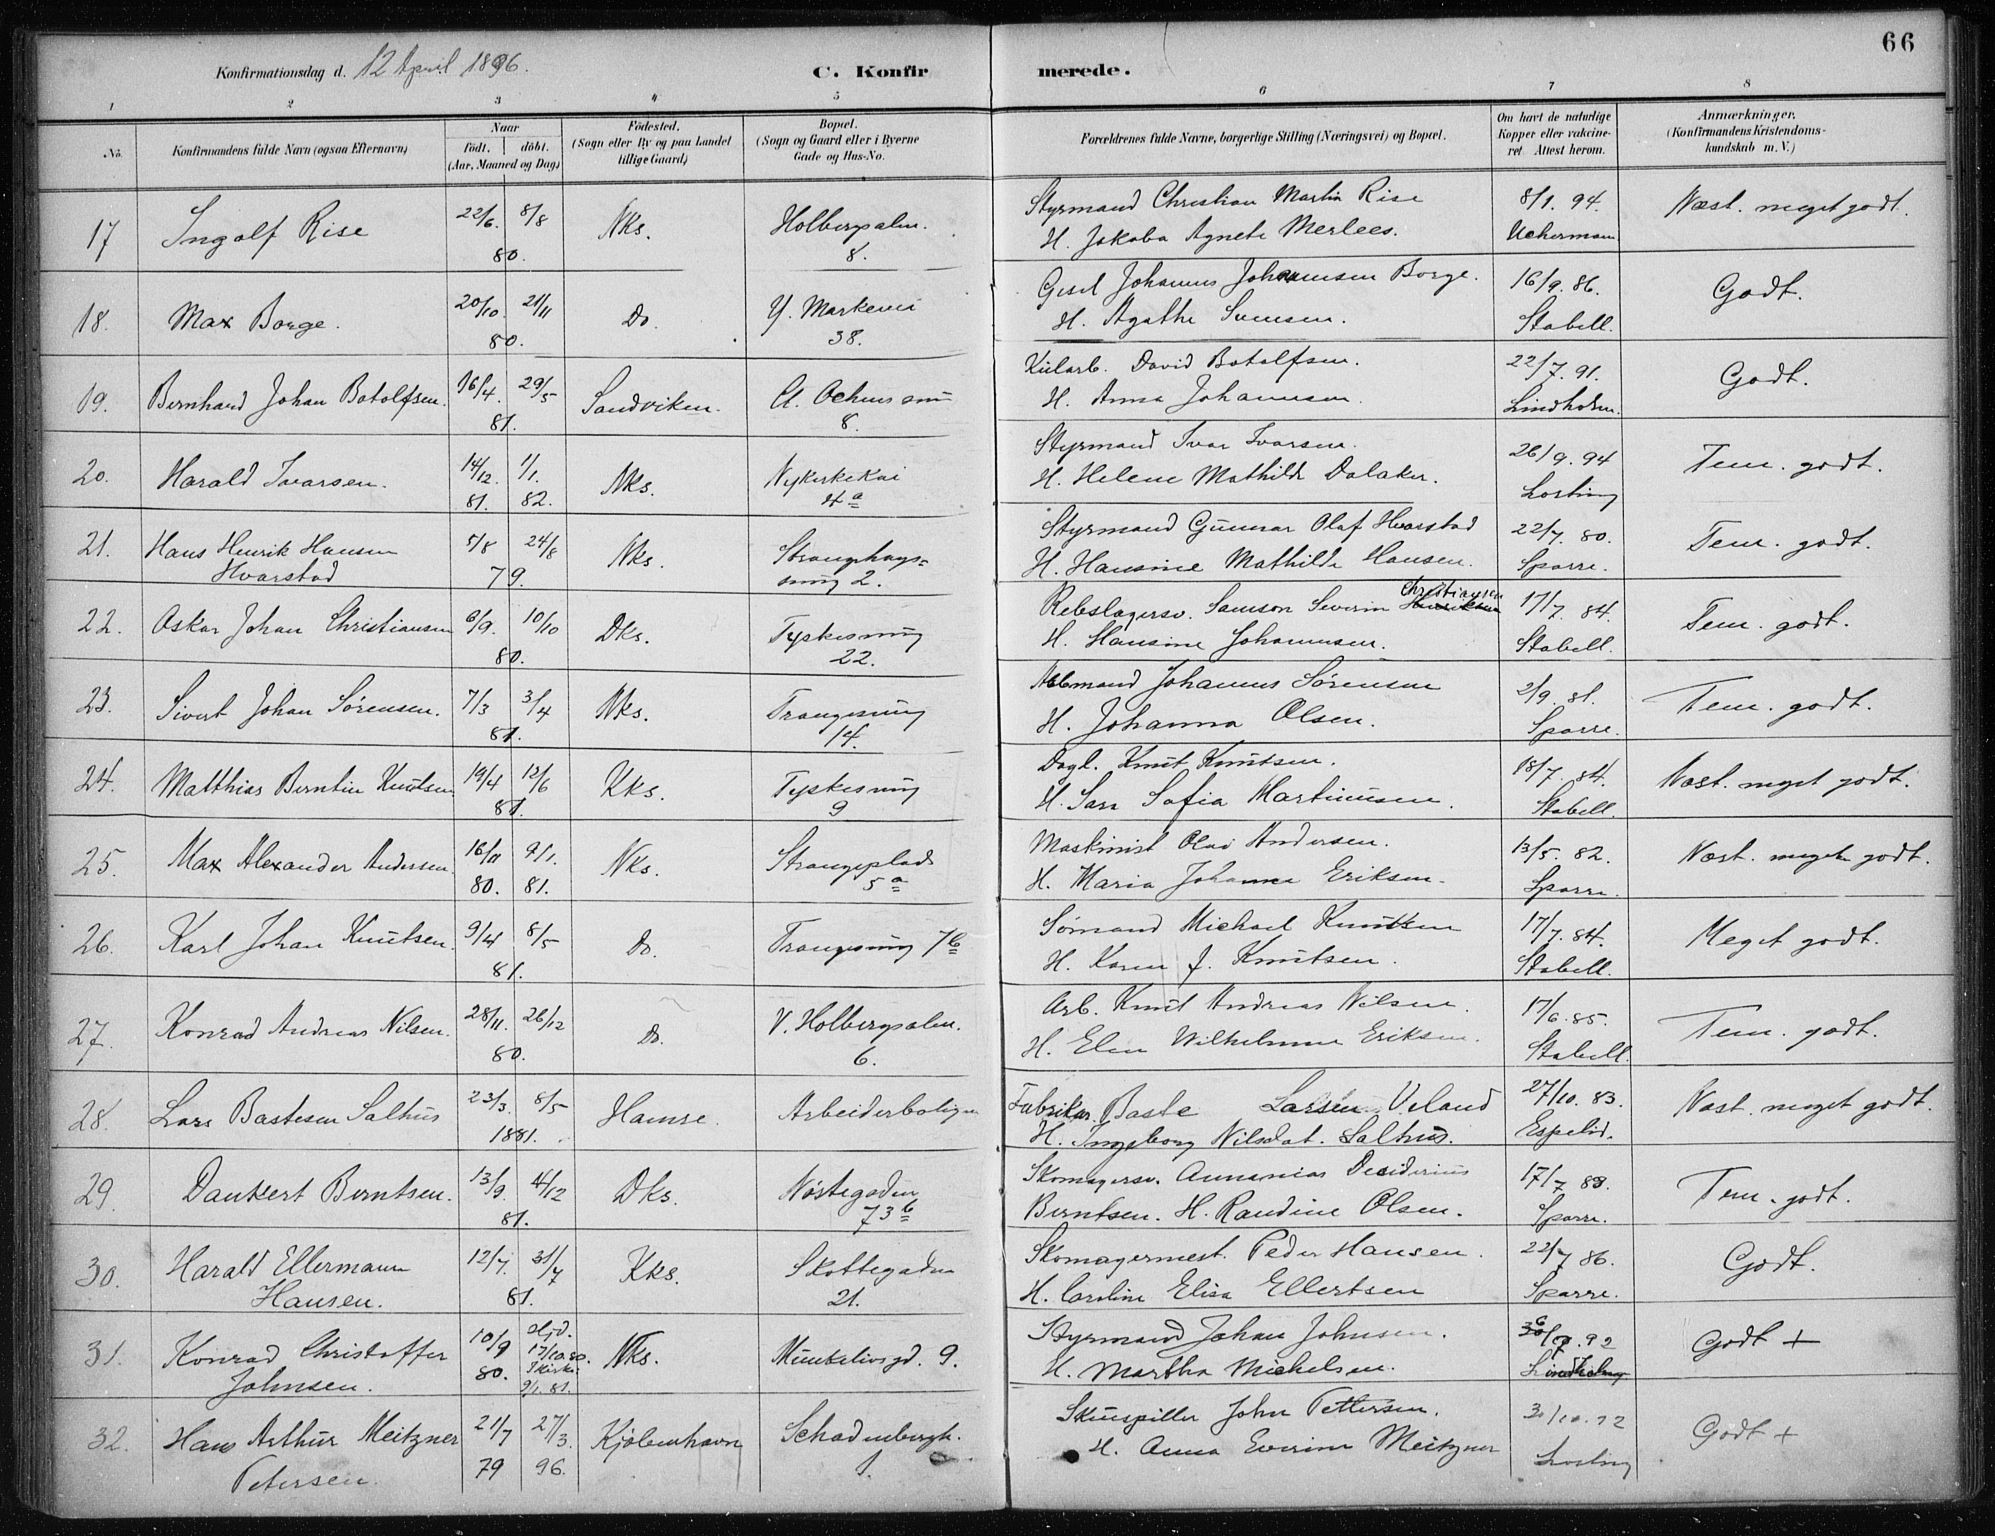 66
Konfirmationsdag d. 12 April 1896.
C. Konfirmerede.
1 2 3 4 5 6 7 8
No.
Konfirmandens fulde Navn (ogsaa Efternavn)
Naar
født. døbt.
(Aar, Maaned og Dag)
Fødested.
(Sogn eller By og paa Landet
tillige Gaard)
Bopæl.
(Sogn og Gaard eller i Byerne
Gade og Hus-No.
Forældrenes fulde Navne, borgerlige Stilling (Næringsvei) og Bopæl.
Om havt de naturlige
Kopper eller vakcine-
ret. Attest herom.
Anmærkninger.
(Konfirmandens Kristendoms-
kundskab m. V.)
17 Ingolf Rise 22/6 8/8 80. Nks. Holbergsalm. 8. Styrmand Christian Martin Rise 8/1. 94.
H. Jakoba Agnete Merlees. Uchermann Næst. meget godt.
18. Max Borge. 20/10. 21/11 80. Do. Y. Markevei 38. Gesel Johannes Johannesen Borge. 16/9. 86.
H. Agathe Svensen. Stabell. Godt.
19. Bernhard Johan Botolfsen. 16/4. 29/5 81. Sandviken. 8. David Botolfsen. 22/7. 91.
H. Anna Johannesen. Lindholm. Godt.
20. Harald Ivarsen. 14/12. 81. 1/1. 82. Nks. Nykirkekai 4a Styrmand Ivar Ivarsen. 26/9. 94
H. Helene Mathilde Dalaker. Losting Tem. godt.
21. Hans Henrik Hansen Hvarstad 5/8 24/8 79. Nks. Strangehags-
smug 2. Styrmand Gunnar Olaf Hvarstad 22/7. 80.
H. Hansine Mathilde Hansen. Sparre. Tem. godt.
22. Oskar Johan Christiansen 6/9. 10/10 80. Dks. Tyskesmug 22. Rebslagersv. Samson Severin Henriksen Christiansen 17/7. 84.
H. Hansine Johannesen. Stabell. Tem. godt.
23. Sivert Johan Sørensen. 7/3 3/4 81. Nks. Trangesmug 14. Johannes Sørensen 2/9. 81.
H. Johanna Olsen. Sparre. Tem. godt.
24. Matthias Berntin Knutsen 19/4 12/6 81. Kks. Tyskesmug 9 Dagl. Knut Knutsen. 18/7. 84.
H. Sara Sofia Martinusen. Stabell. Næst. meget godt.
25. Max Alexander Andersen. 16/11 80. 9/1. 81. Nks. Strangeplads 5a Maskinist Olai Andersen. 13/5. 82.
H. Maria Johanna Eriksen. Sparre. Næst. meget godt.
26. Karl Johan Knutsen. 9/4 8/5 81. Do. Trangesmug 7b Sømand Michael Knutsen 17/7. 84.
H. Karen J. Knutsen. Stabell. Meget godt.
27. Konrad Andreas Nilsen. 28/11. 26/12 80. Do. V. Holbergsalm. 6. Arb. Knut Andreas Nilsen. 17/6. 85.
H. Elen Wilhelmine Eriksen. Stabell. Tem. godt.
28. Lars Bastesen Salhus 23/3. 8/5 1881. Hamre. Arbeiderboligen Fabrikar. Baste Larsen Veland 27/10. 83.
H. Ingeborg Nilsdat. Salhus. Espelid. Næst. meget godt.
29. Dankert Berntsen. 13/9. 4/12 81. Dks. Nøstegaden 73b Skomagersv. Annanias Desiderius 17/7 83.
Berntsen. H. Randine Olsen. Sparre. Tem. godt.
30. Harald Ellermann Hansen. 12/7. 31/7 81. Kks. Skottegaden 21. Skomagermest. Peder Hansen. 22/7 86.
H. Caroline Elisa Ellertsen Sparre. Godt.
31. Konrad Christoffer Johnsen. 10/9 80. Hjd. 17/10.80. I Kirke 9/1. 81. Nks. Munkelivsgd. 9. Styrmand Johan Johnsen. 92
H. Martha Michelsen. Godt +
32. Hans Arthur Meitzner Petersen. 21/7 79 27/3. 96. Kjøbenhavn 1. Skuespiller John Pettersen.
H. Anna Everine Meitzner Losting Godt +